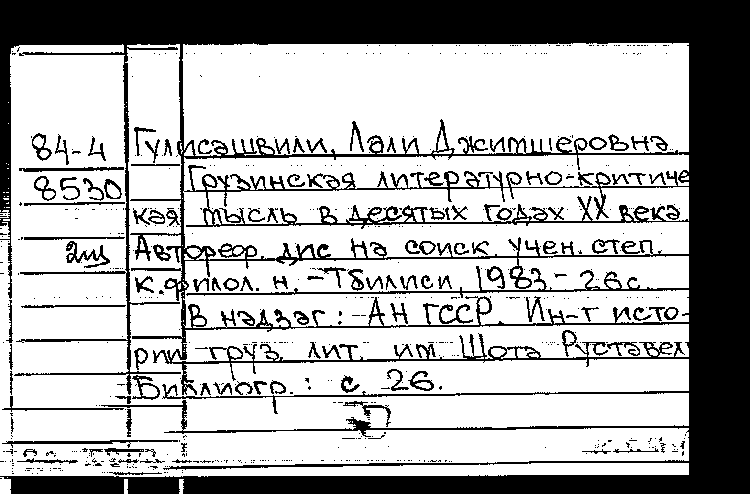 84-4 Гулисашвили, Лали Джимшеровна.
8530 Грузинская литературно-критиче
кая мысль в десятых годах XX века.
2щ Автореф. дис на соиск. учен. степ.
к.филол. н. – Тбилиси, 1983.- 26с.
В надзаг: АН ГССР. Ин-т исто-
рии груз. лит. им. Шота Руставел
Библиогр.: с. 26.